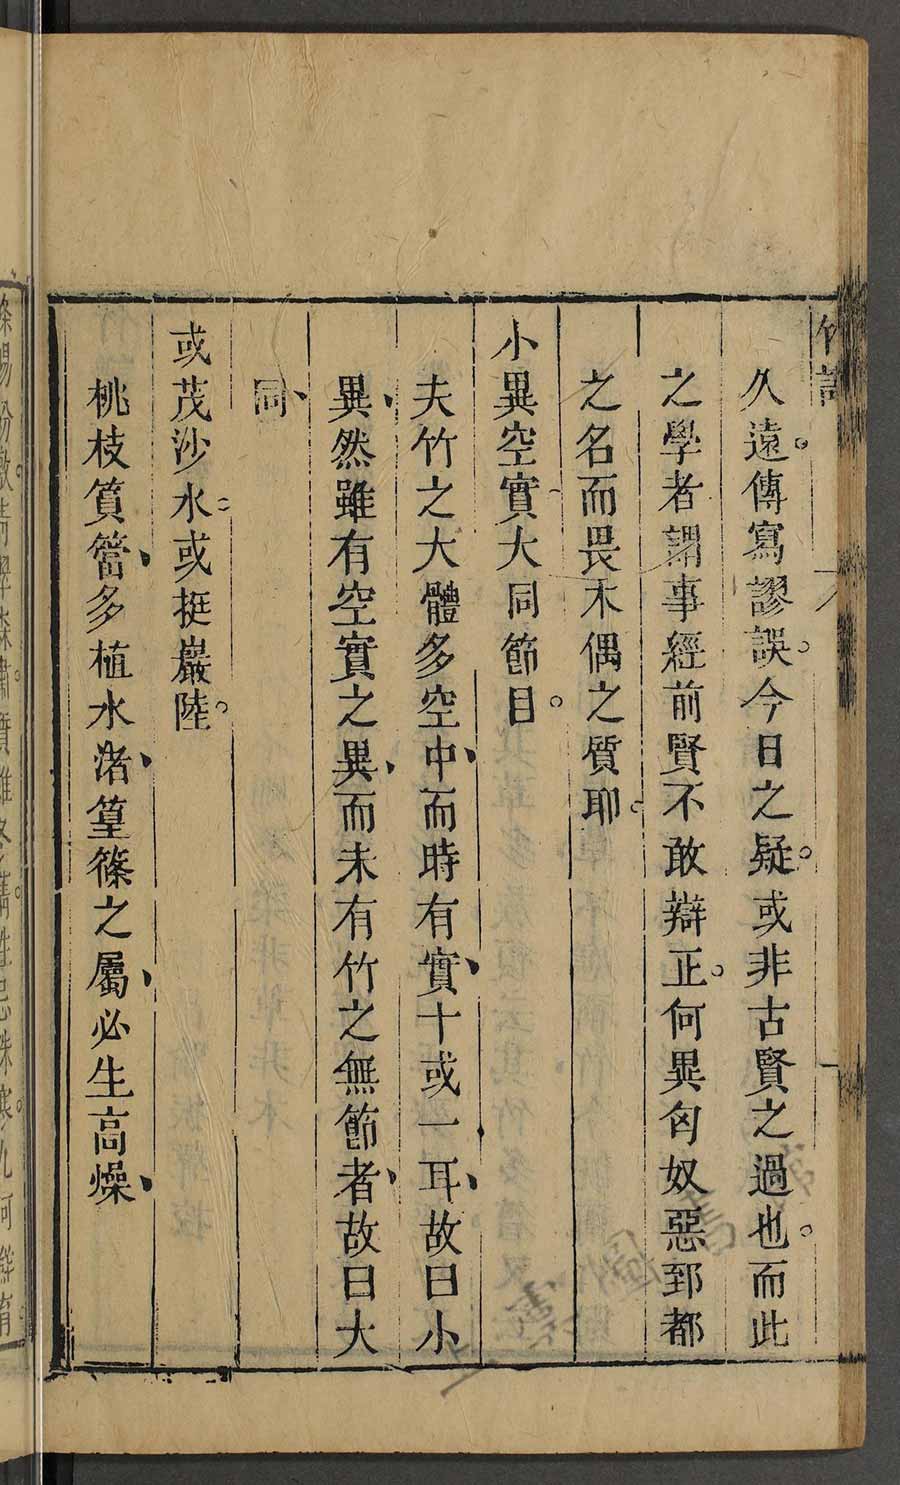 久遠傳寫謬誤今日之疑或非古賢之過也而此
之學者謂事經前賢不敢辯正何異匈奴惡郅都
之名而畏木偶之質耶
小異空實大同節目
夫竹之大體多空中而時有實十或一耳故曰小
異然雖有空實之異而未有竹之無節者故曰大
同
或茂沙水或挺巖陸
桃枝篔簹多植水渚篁篠之屬必生高燥